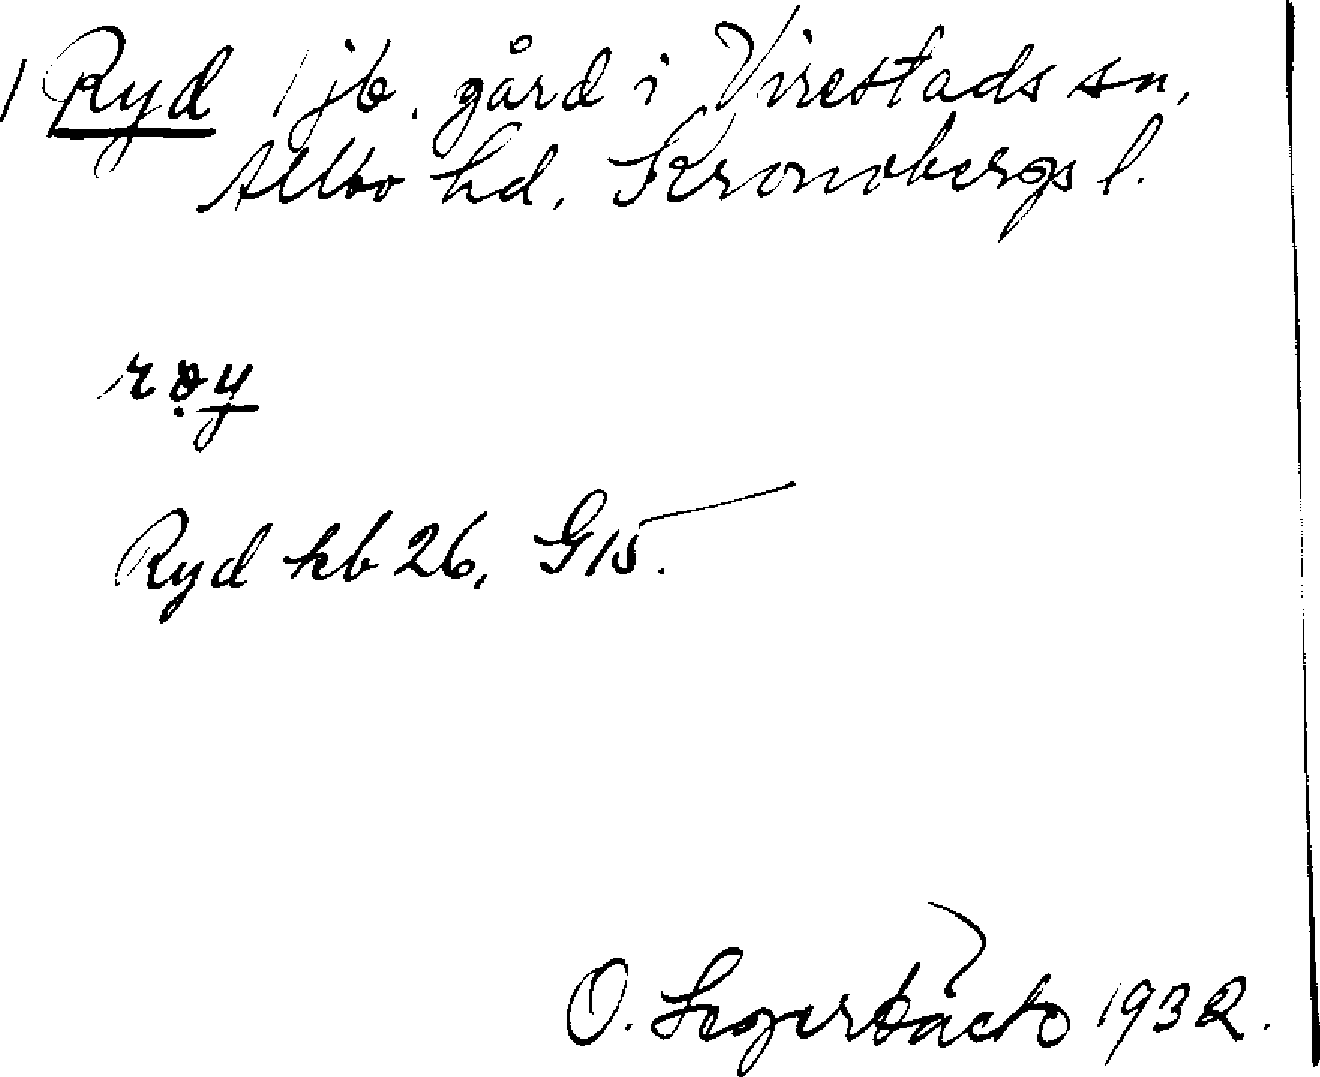 1 Ryd 1 jb. gård i Virestads sn,
Allbo hd. Kronobergs l.
rø̣y
Ryd kb 26, G15.
O. Segerbäck 1932.